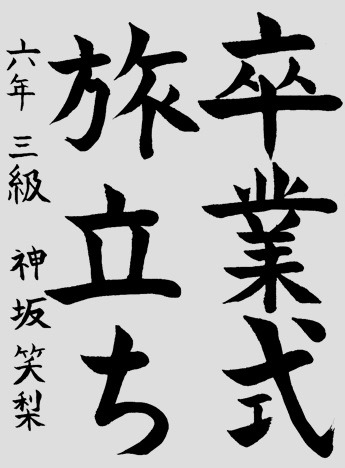 卒業式
旅立ち
六年 三級 神坂笑梨